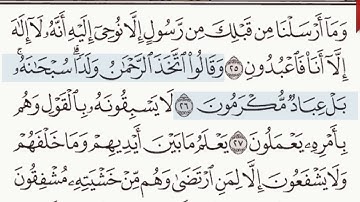 وَمَآ أَرْسَلْنَا مِن قَبْلِكَ مِن رَّسُولٍ إِلَّا نُوحِىٓ إِلَيْهِ أَنَّهُۥ لَآ إِلَٰهَ
إِلَّآ أَنَا۠ فَٱعْبُدُونِ ٢٥ وَقَالُوا۟ ٱتَّخَذَ ٱلرَّحْمَٰنُ وَلَدًا ۗ سُبْحَٰنَهُۥ ۚ
بَلْ عِبَادٌ مُّكْرَمُونَ ٢٦ لَا يَسْبِقُونَهُۥ بِٱلْقَوْلِ وَهُم
بِأَمْرِهِۦ يَعْمَلُونَ ٢٧ يَعْلَمُ مَا بَيْنَ أَيْدِيهِمْ وَمَا خَلْفَهُمْ
وَلَا يَشْفَعُونَ إِلَّا لِمَنِ ٱرْتَضَىٰ وَهُم مِّنْ خَشْيَتِهِۦ مُشْفِقُونَ